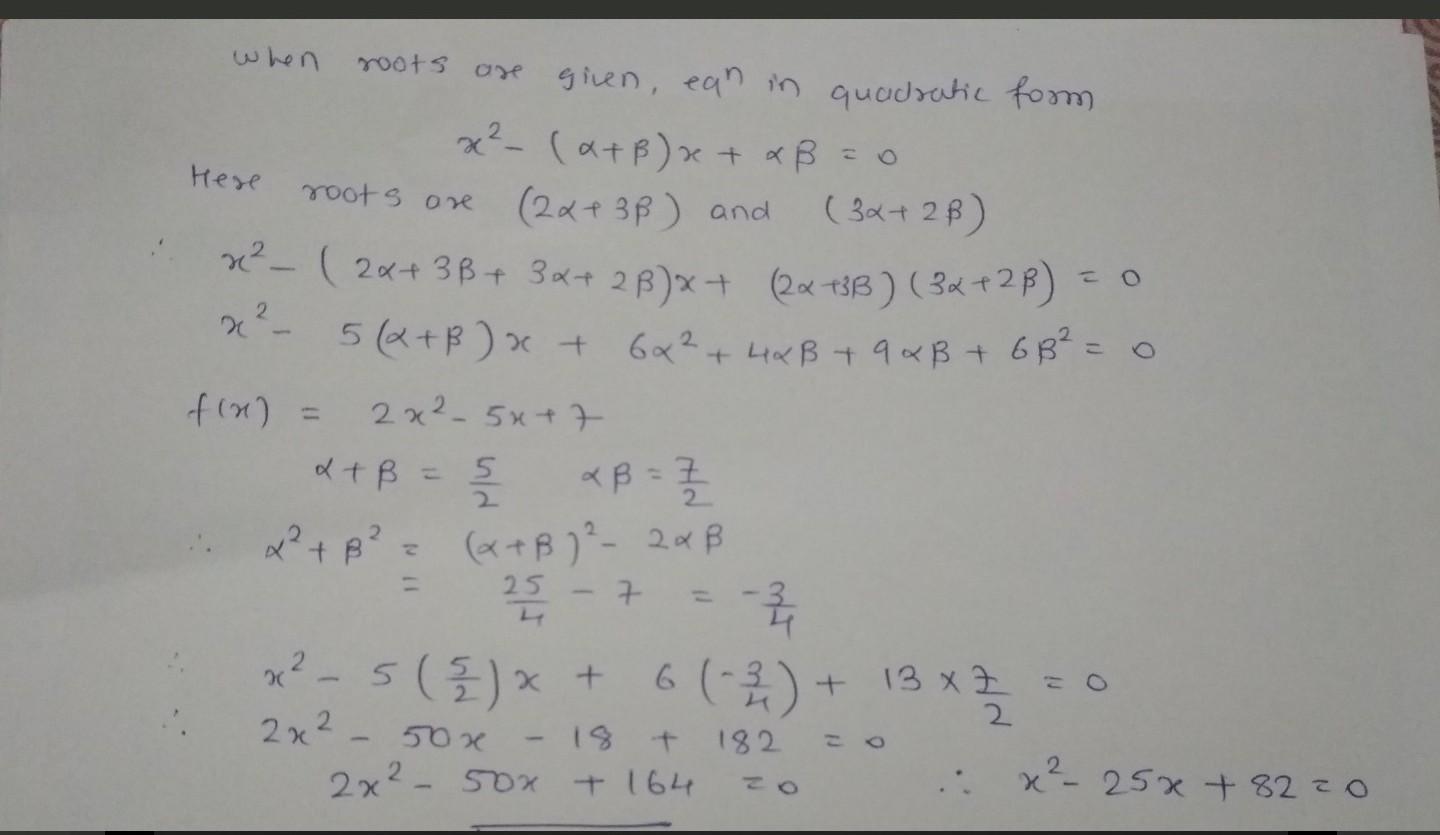 when roots are given, eqⁿ in quadratic form
x² - (α+β)x + αβ = 0
Here roots are (2α+3β) and (3α+2β)
∴ x² - (2α+3β+3α+2β)x + (2α+3β)(3α+2β) = 0
x² - 5(α+β)x + 6α² + 4αβ + 9αβ + 6β² = 0
f(x) = 2x² - 5x + 7
α+β = 5/2 αβ = 7/2
∴ α²+β² = (α+β)² - 2αβ
= 25/4 - 7 = -3/4
∴ x² - 5(5/2)x + 6(-3/4) + 13 × 7/2 = 0
∴ 2x² - 50x - 18 + 182 = 0
2x² - 50x + 164 = 0 ∴ x² - 25x + 82 = 0